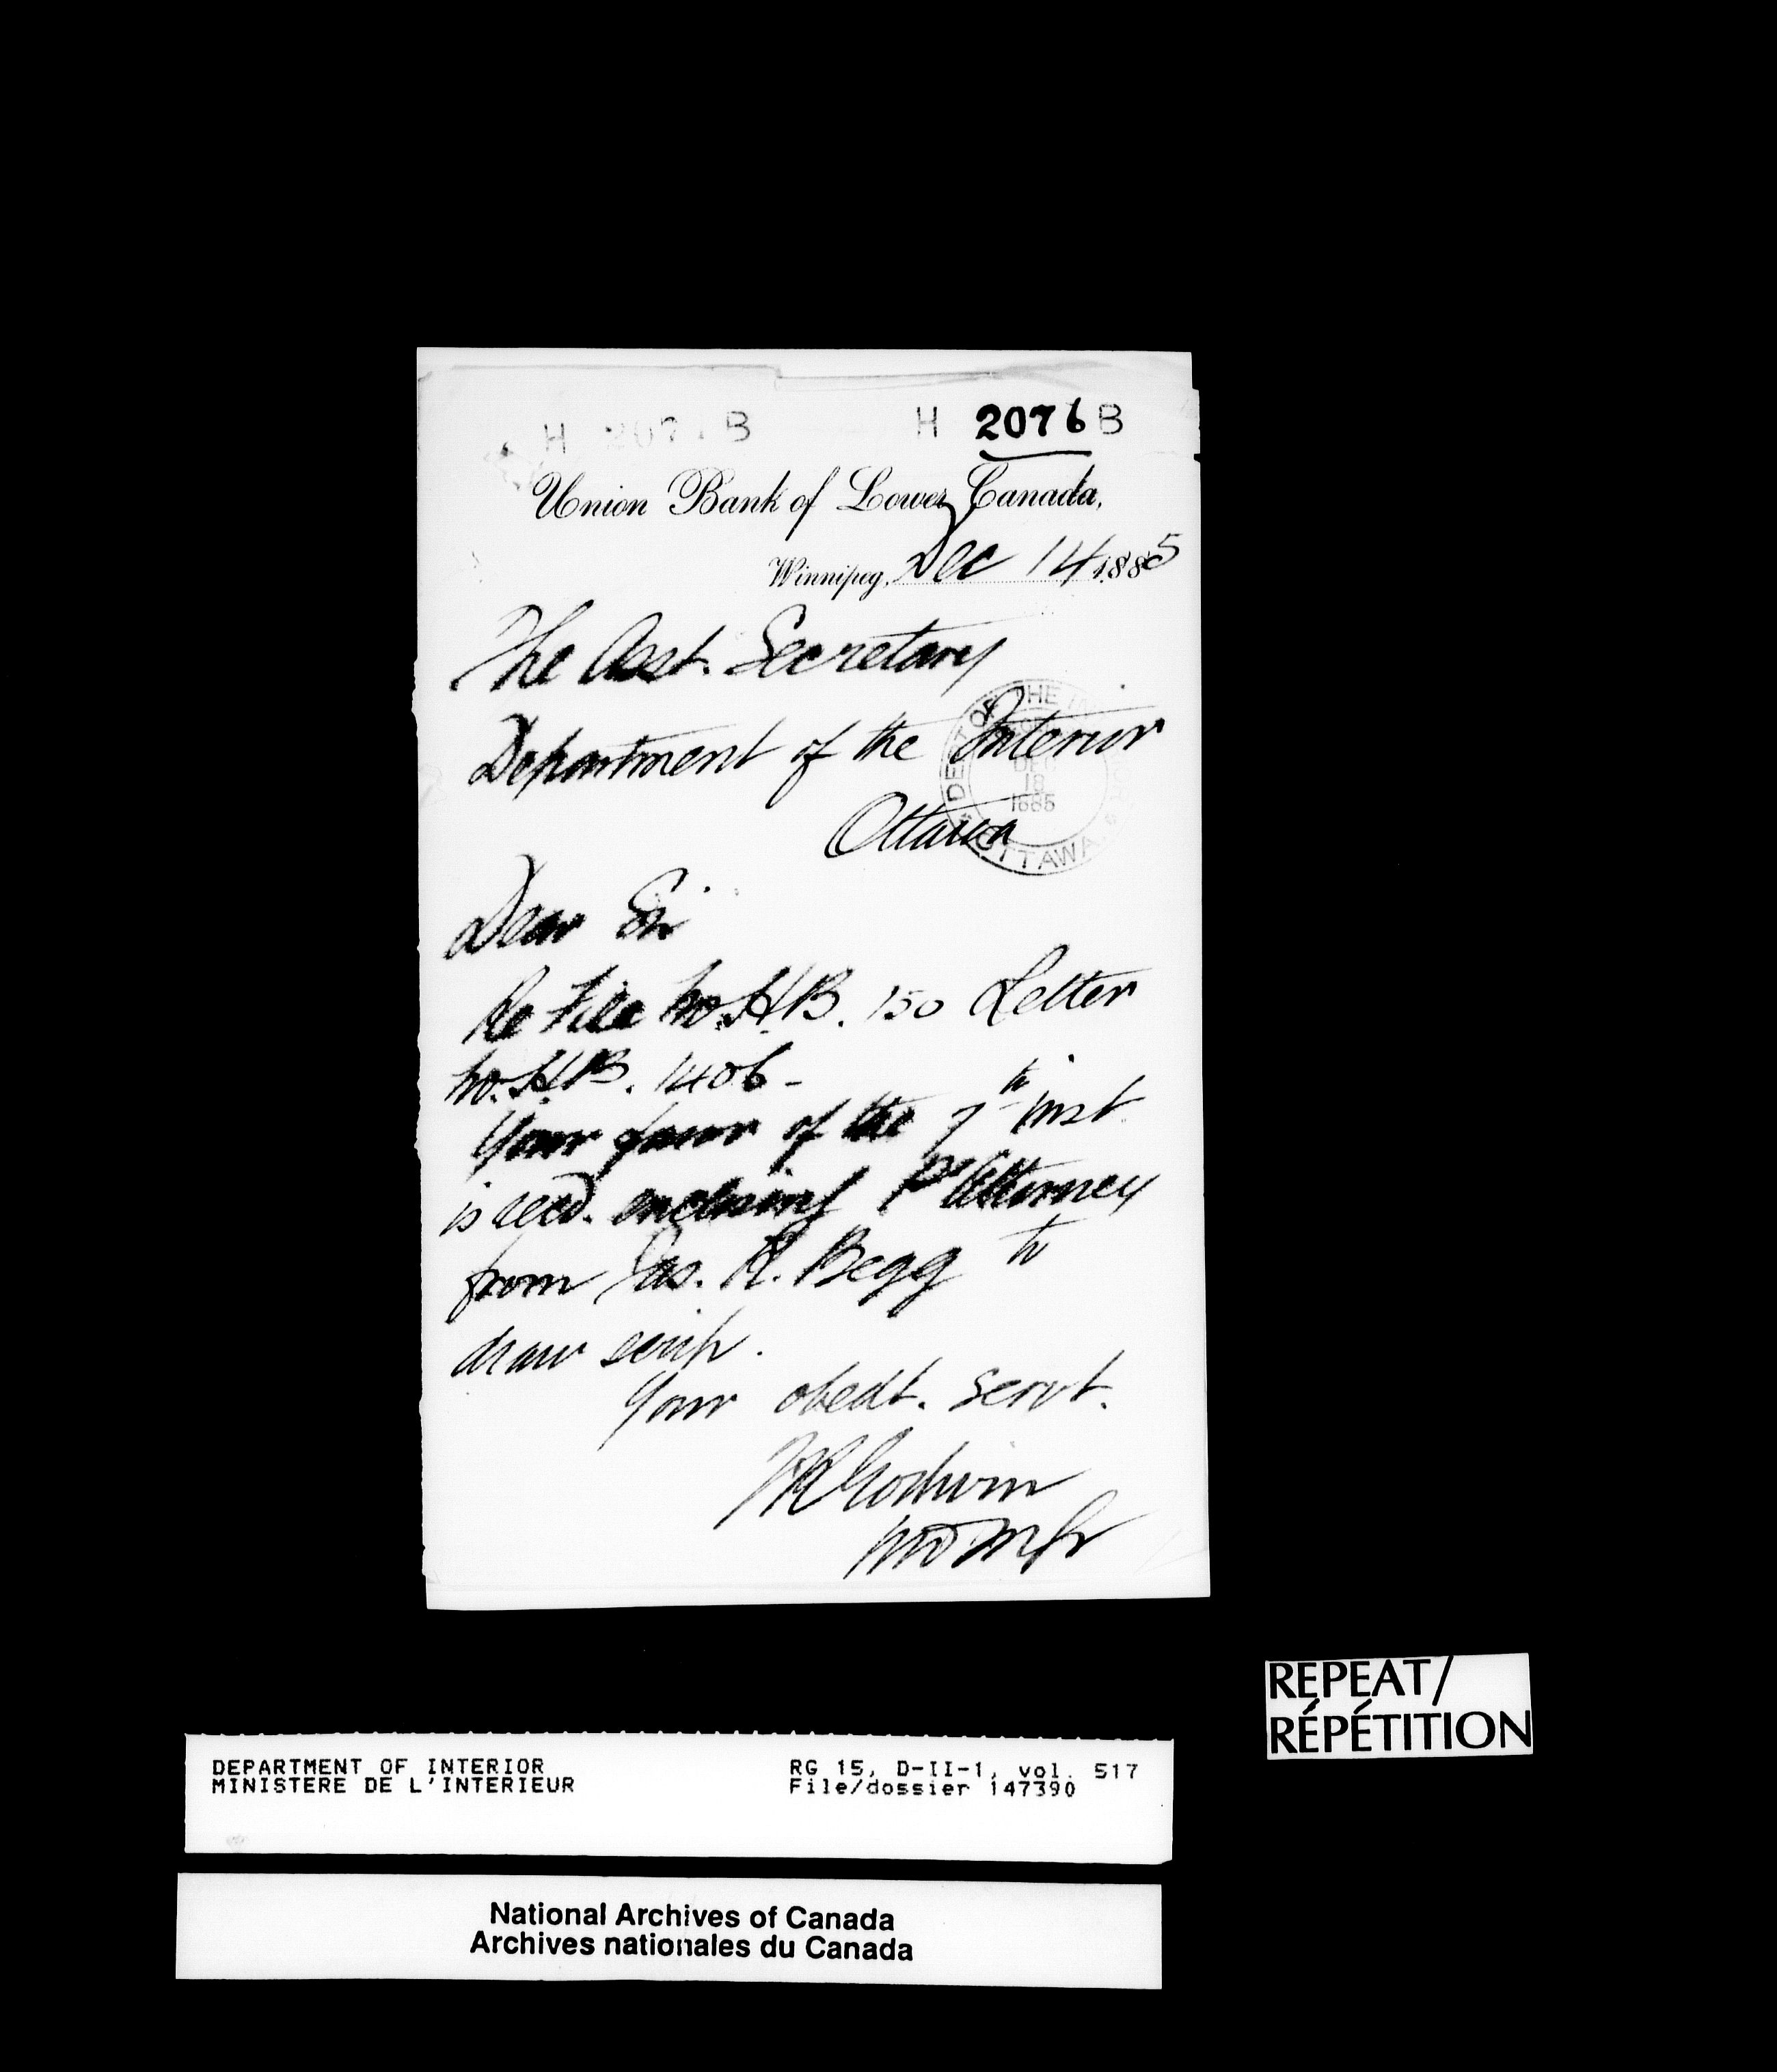 H 207 B H 2076 B
Union Bank of Lower Canada,
Winnipeg, Dec 14 1885
The Asst. Secretary
Department of the Interior
Ottawa
DEPT OF THE IN OR
DEC
18
1885
* OTTAWA *
Dear Sir
Re File No. H.B. 150 Letter
No. H.B. 1406 -
Your favor of the 7th inst
is recd. enclosing Pr Attorney
from Jas. R. Begg to
draw scrip.
Your obedt. servt.
Godwin
REPEAT/
RÉPÉTITION
DEPARTMENT OF INTERIOR
MINISTERE DE L'INTERIEUR
RG 15, D-II-1, vol. 517
File/dossier 147390
National Archives of Canada
Archives nationales du Canada